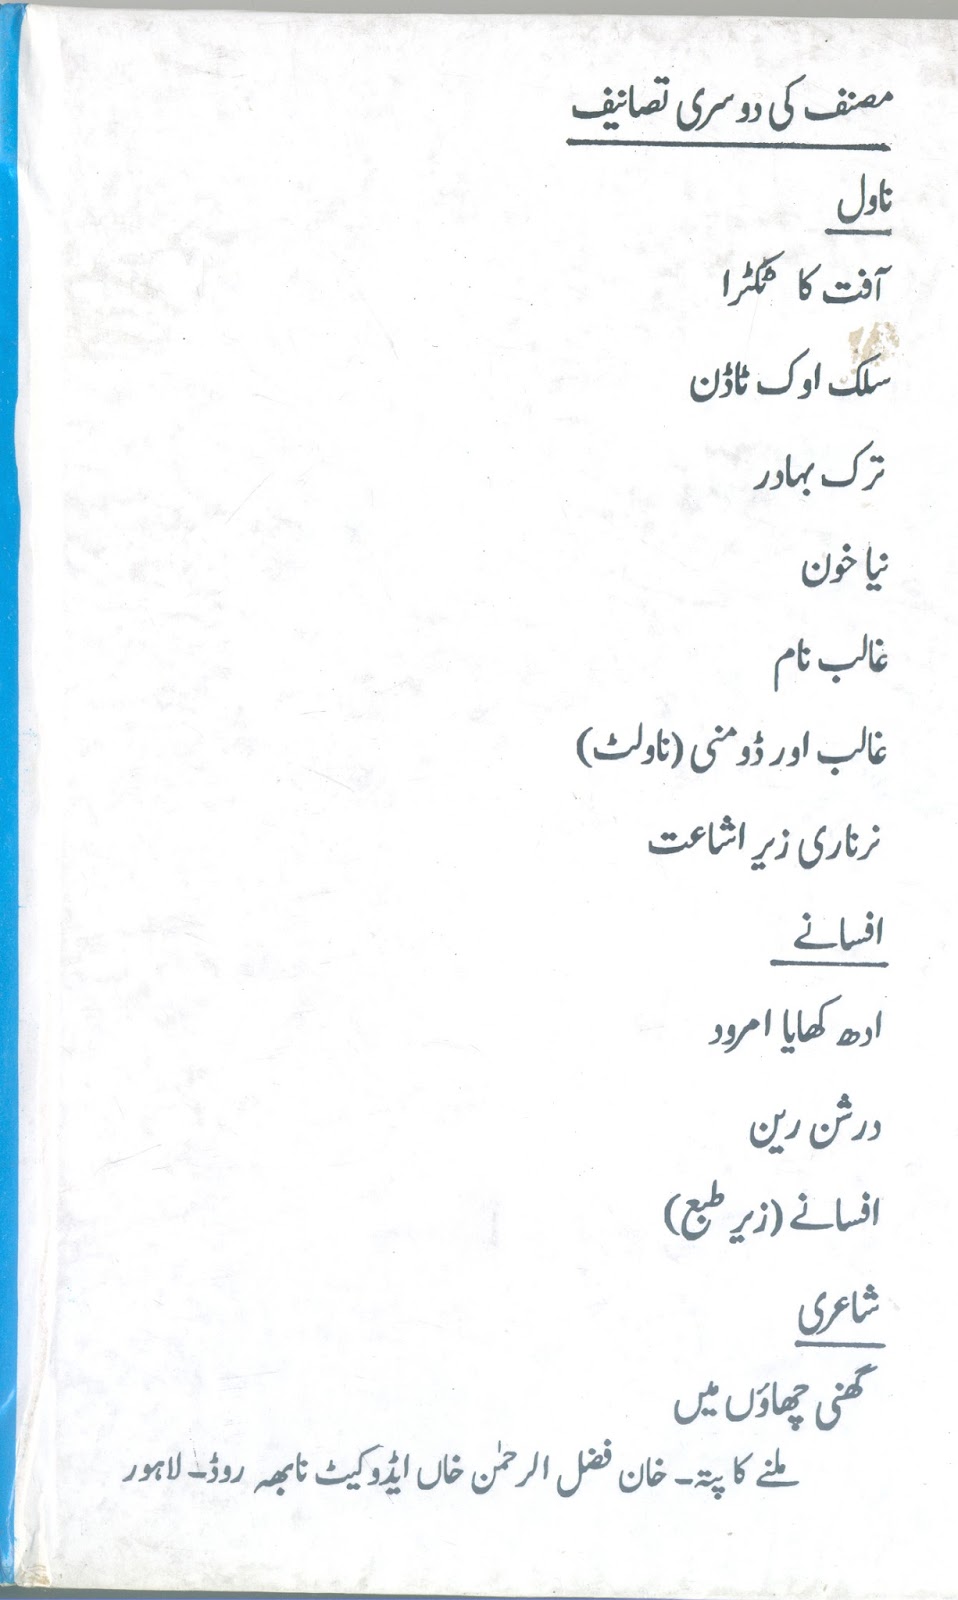 مصنف کی دوسری تصانیف
ناول
آفت کا ٹکڑا
سلک اوک ٹاؤن
ترک بہادر
نیا خون
غالب نام
غالب اور ڈومنی (ناولٹ)
نرناری زیرِ اشاعت
افسانے
ادھ کھایا امرود
درشن رین
افسانے (زیرِ طبع)
شاعری
گھنی چھاؤں میں
ملنے کا پتہ۔ خان فضل الرحمٰن خاں ایڈوکیٹ نابھہ روڈ۔ لاہور